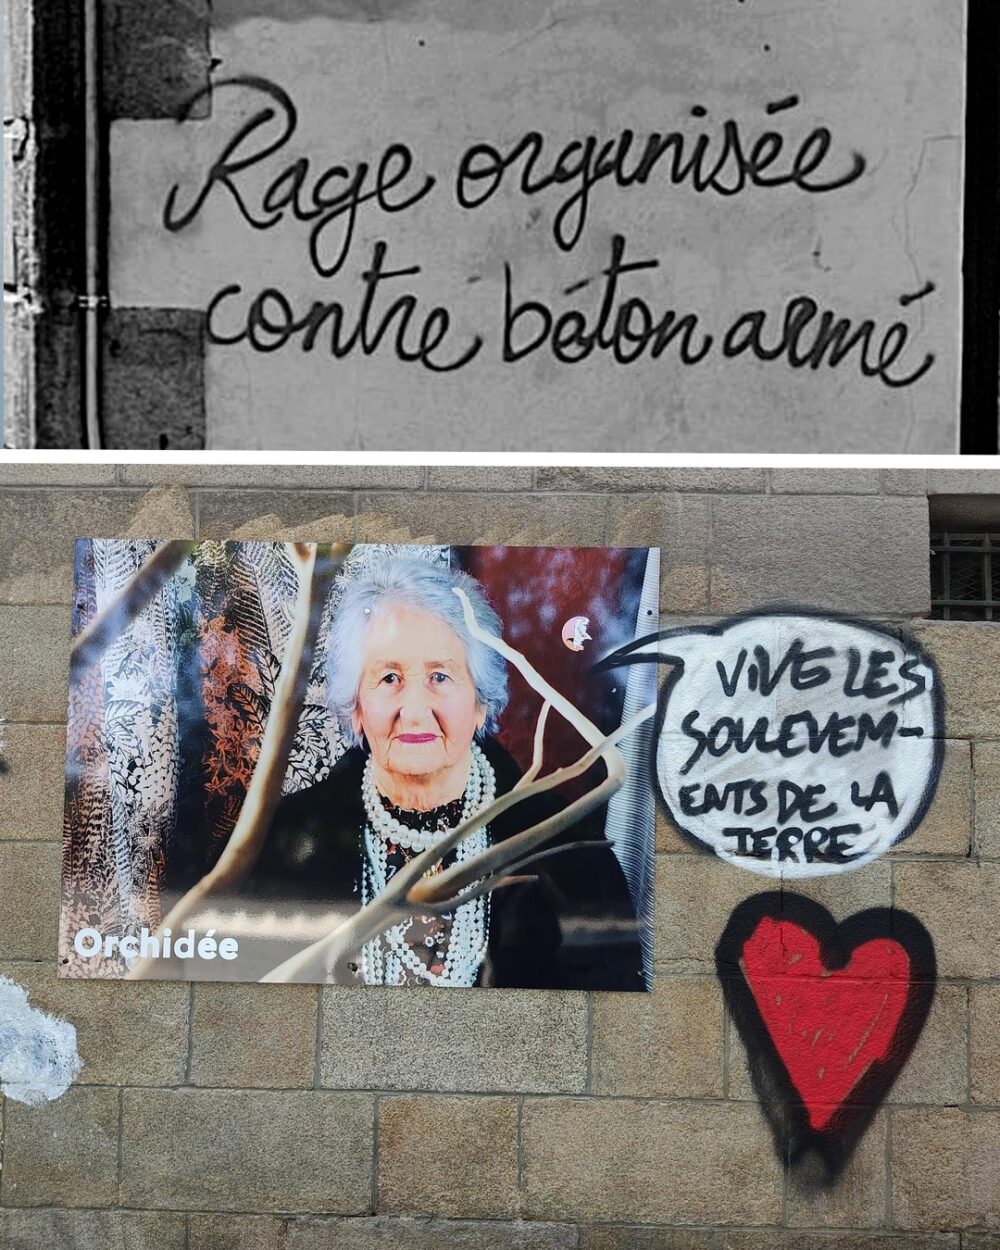 Rage organisée
contre béton armé
VIVE LES
SOULEVEM-
ENTS DE LA
TERRE
Orchidée